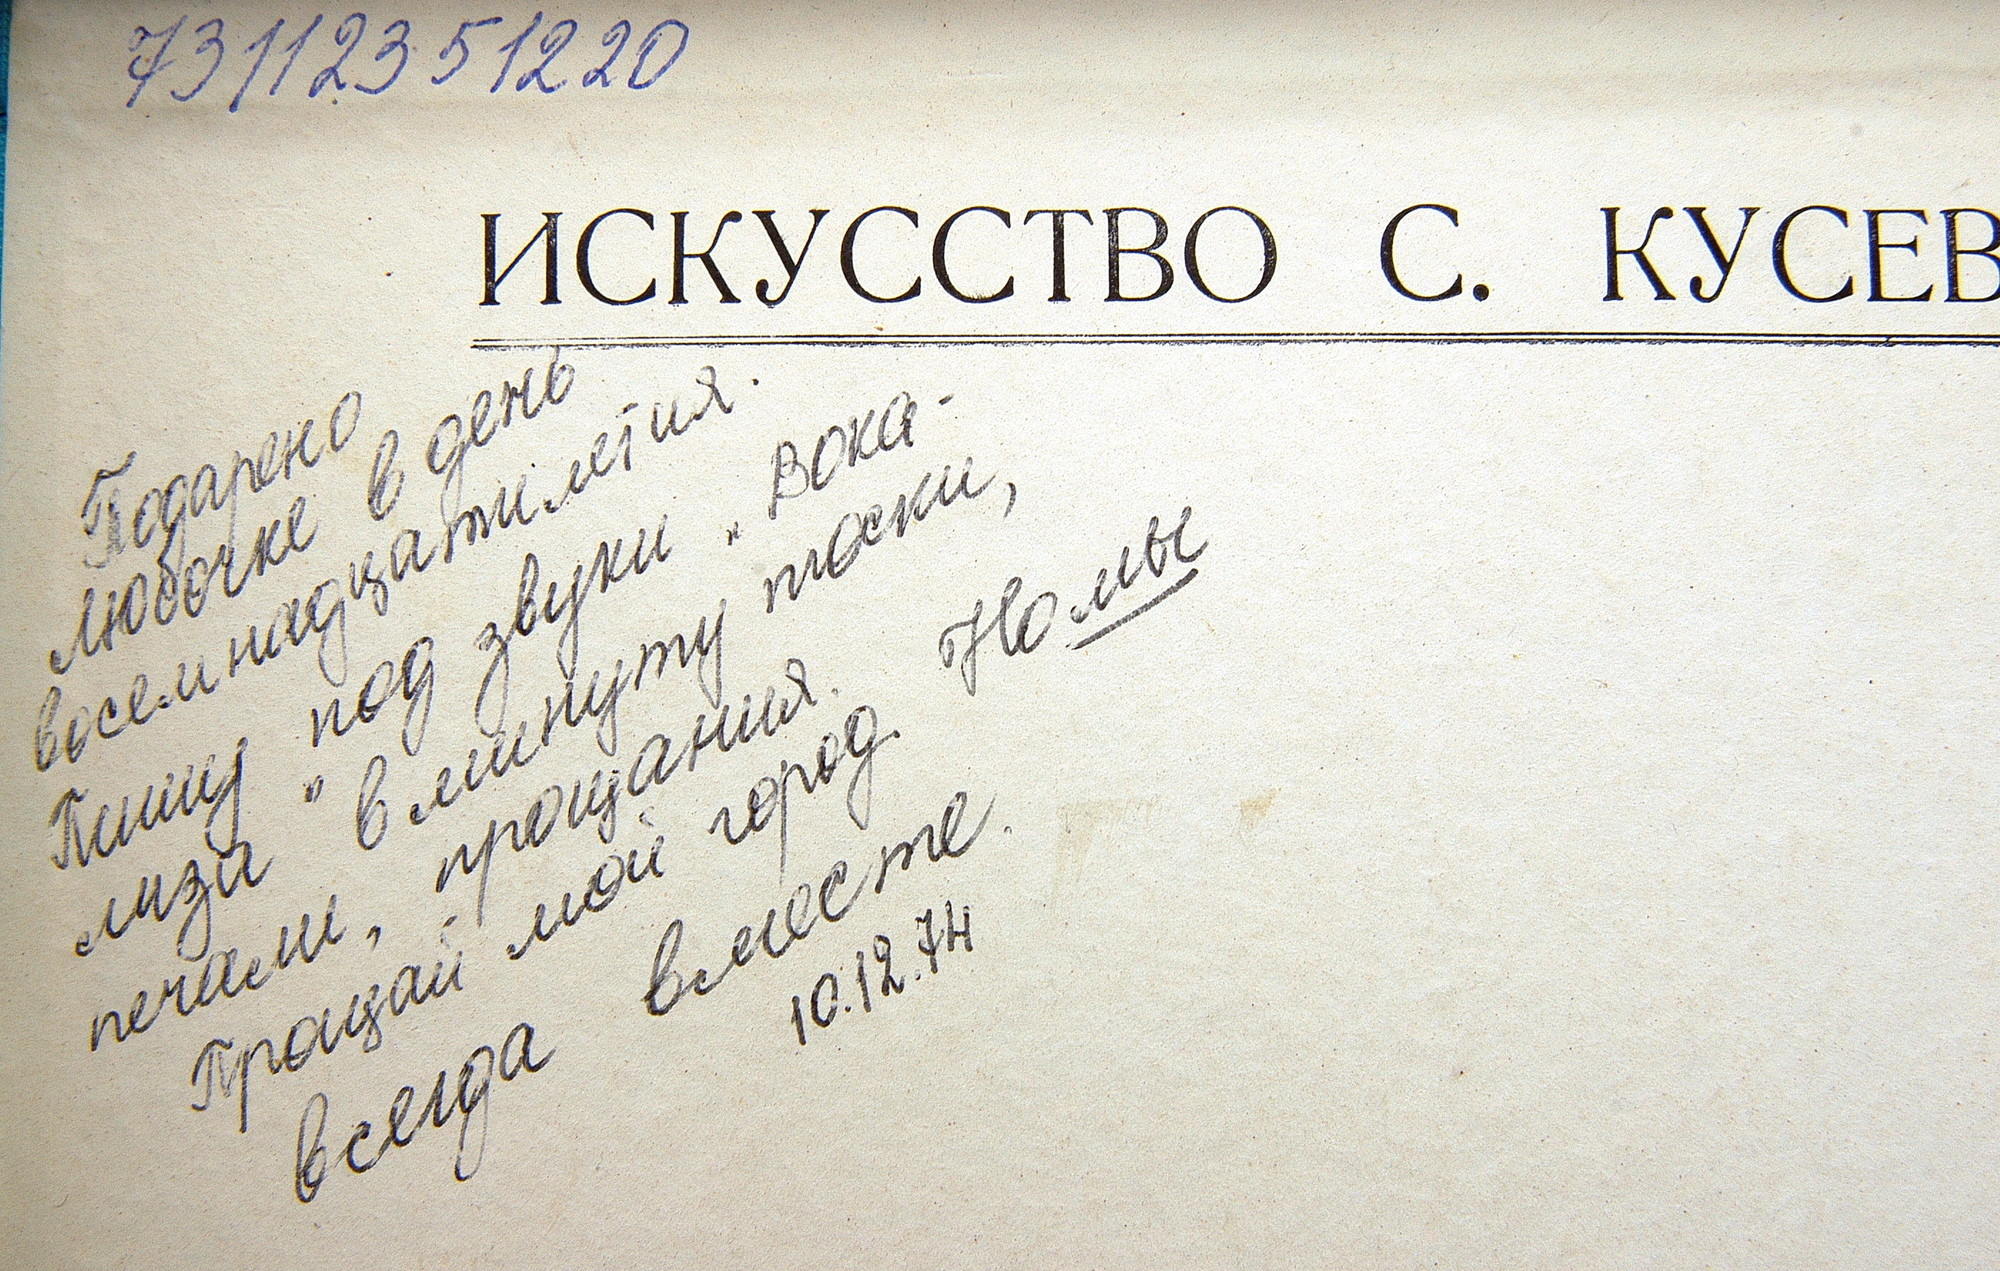 73112351220
ИСКУССТВО С. КУСЕВ
Подарено
Любочке в день
восемнадцатилетия.
Пишу под звуки „Вока-
лиза" в минуту тоски,
печали, прощания.
Прощай мой город. Но мы
всегда вместе.
10.12.74